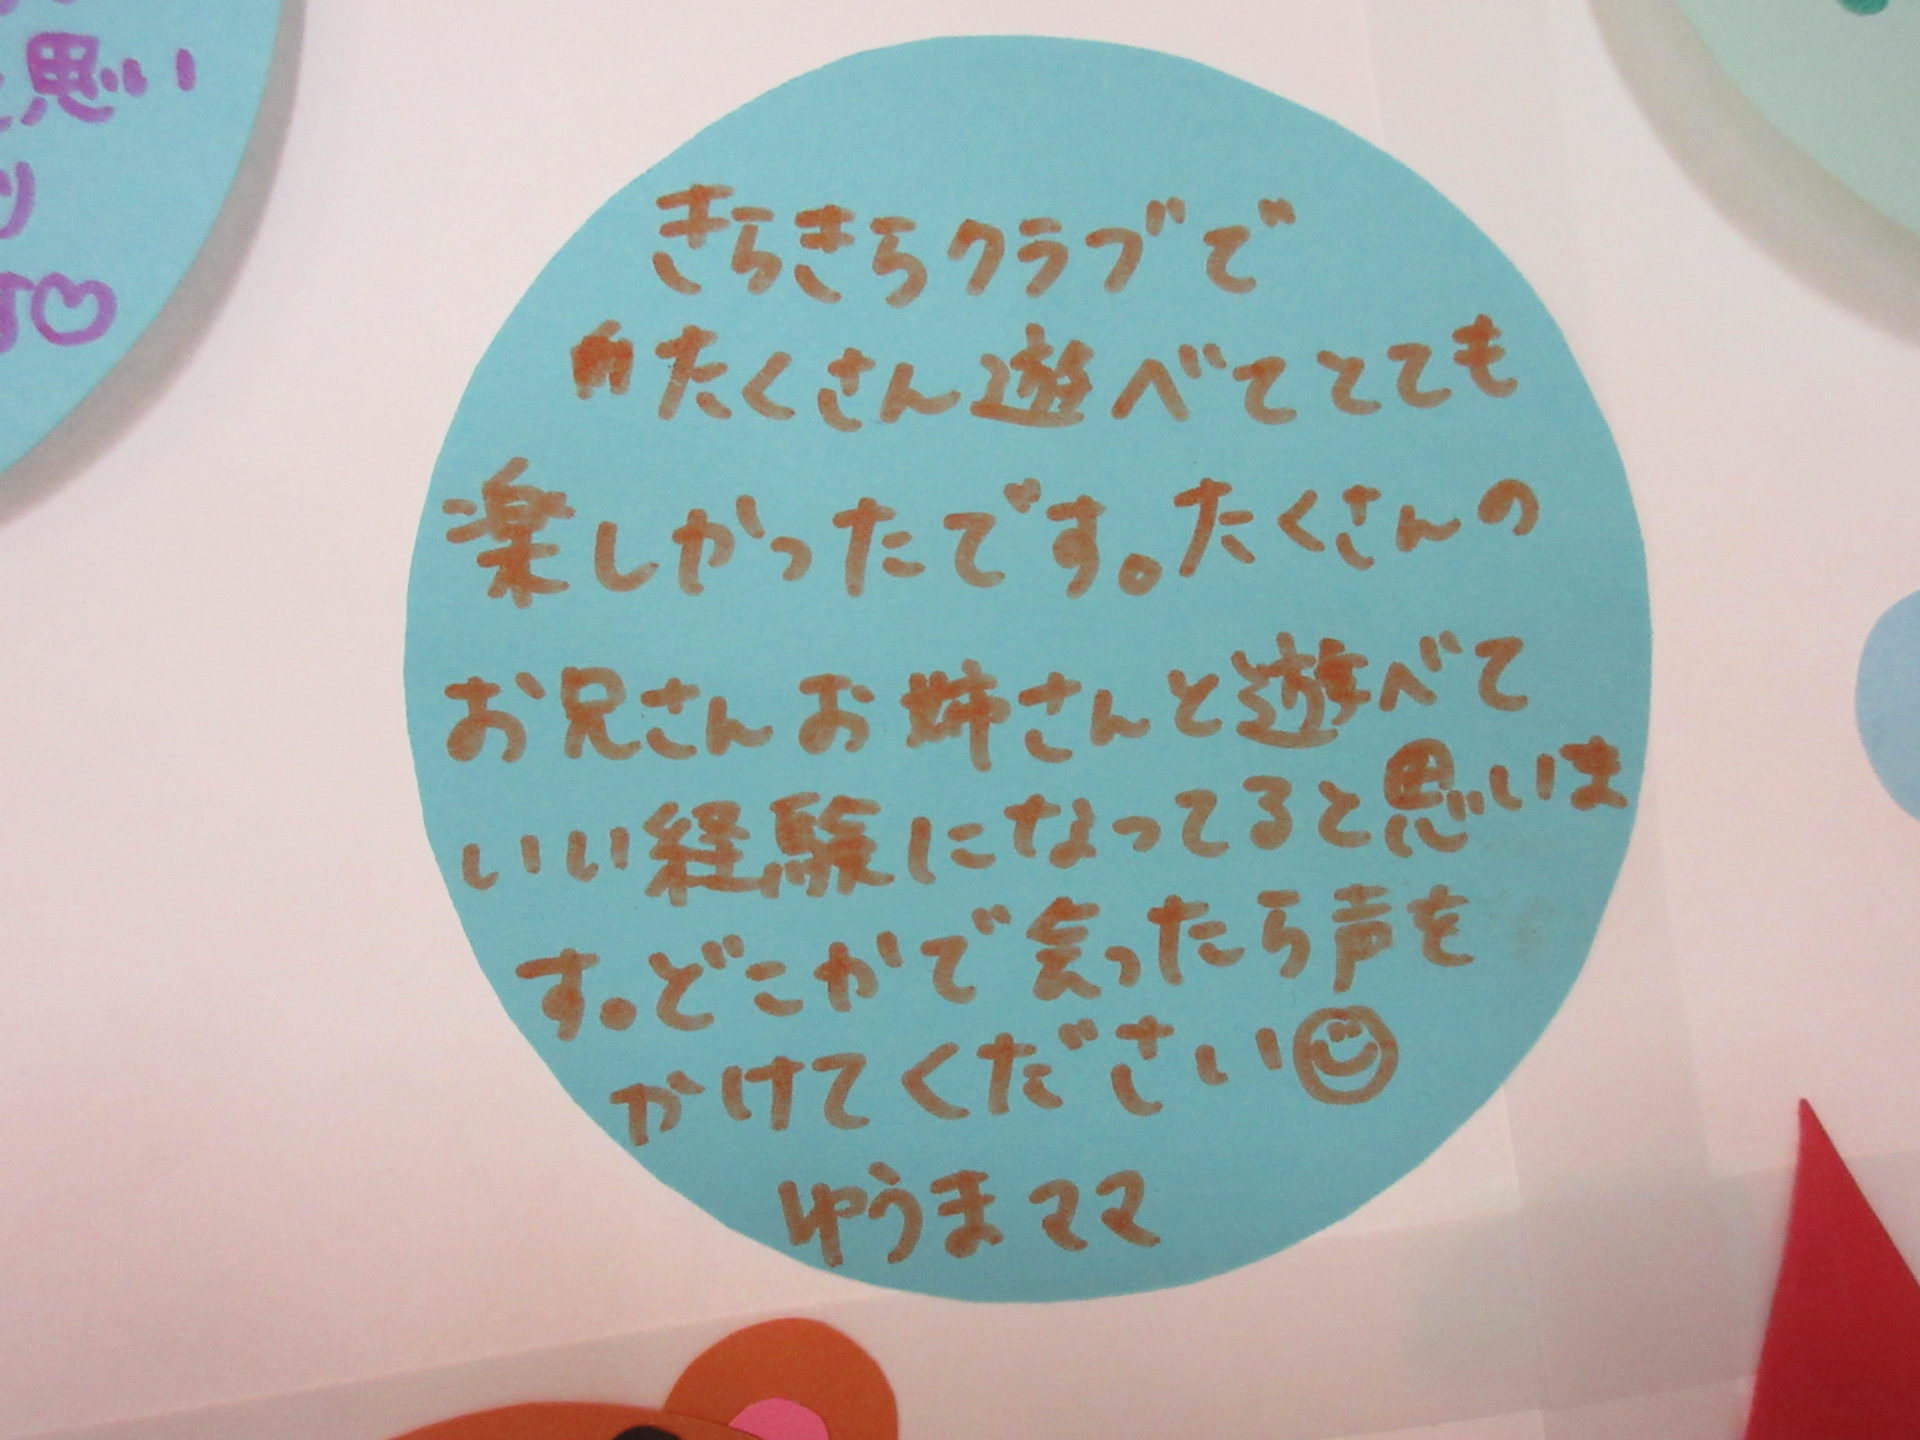 思い
り
す♡
きらきらクラブで
たくさん遊べてとても
楽しかったです。たくさんの
お兄さんお姉さんと遊べて
いい経験になってると思いま
す。どこかで会ったら声を
かけてください☺
ゆうまママ